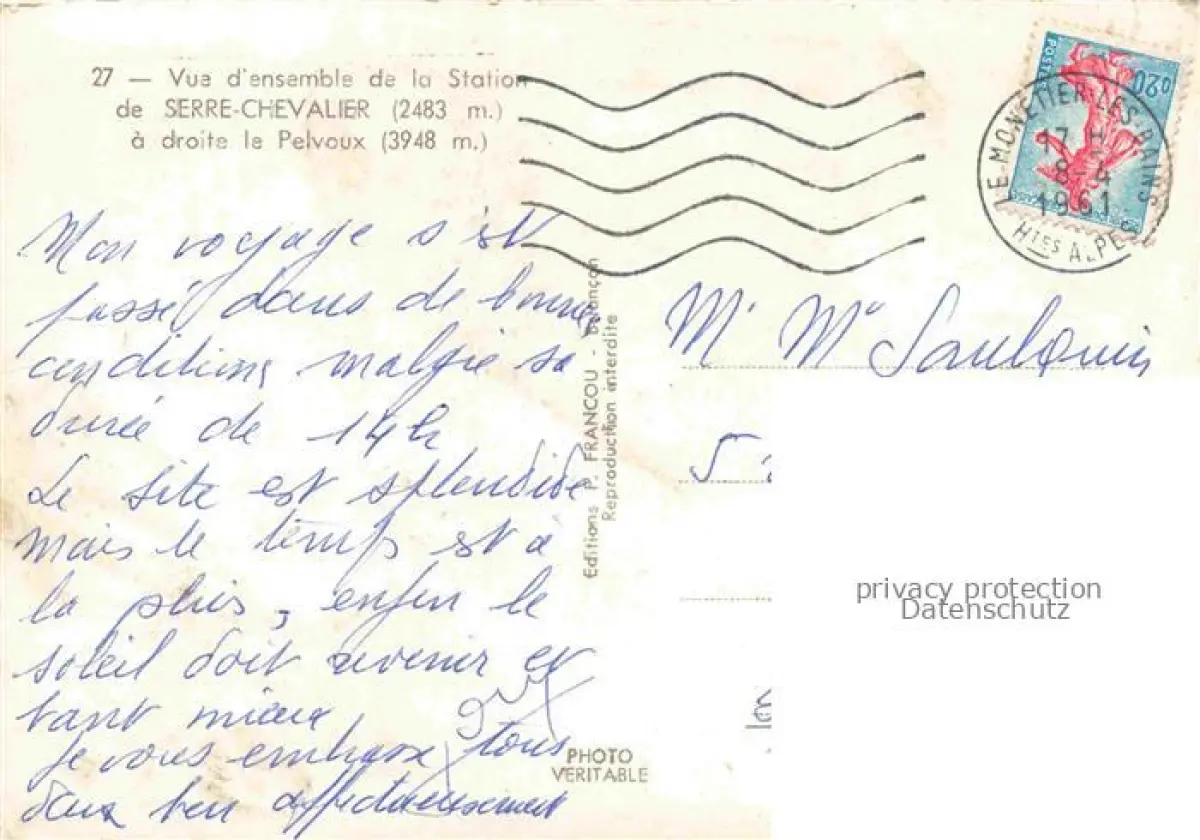 27 — Vue d'ensemble de la Station
de SERRE-CHEVALIER (2483 m.)
à droite le Pelvoux (3948 m.)
POSTES
0,20
LE MONETIER-LES-BAINS
17 H
8-4
1961
HTES ALPES
Mon voyage s'est
passé dans de bonnes
conditions malgré sa
durée de 14h
Le site est splendide
mais le temps est à
la pluie, enfin le
soleil doit revenir et
tant mieux
je vous embrasse tous
deux bien affectueusement
Editions P. FRANCOU - Briançon
Reproduction interdite
PHOTO
VERITABLE
Mr Mme
privacy protection
Datenschutz